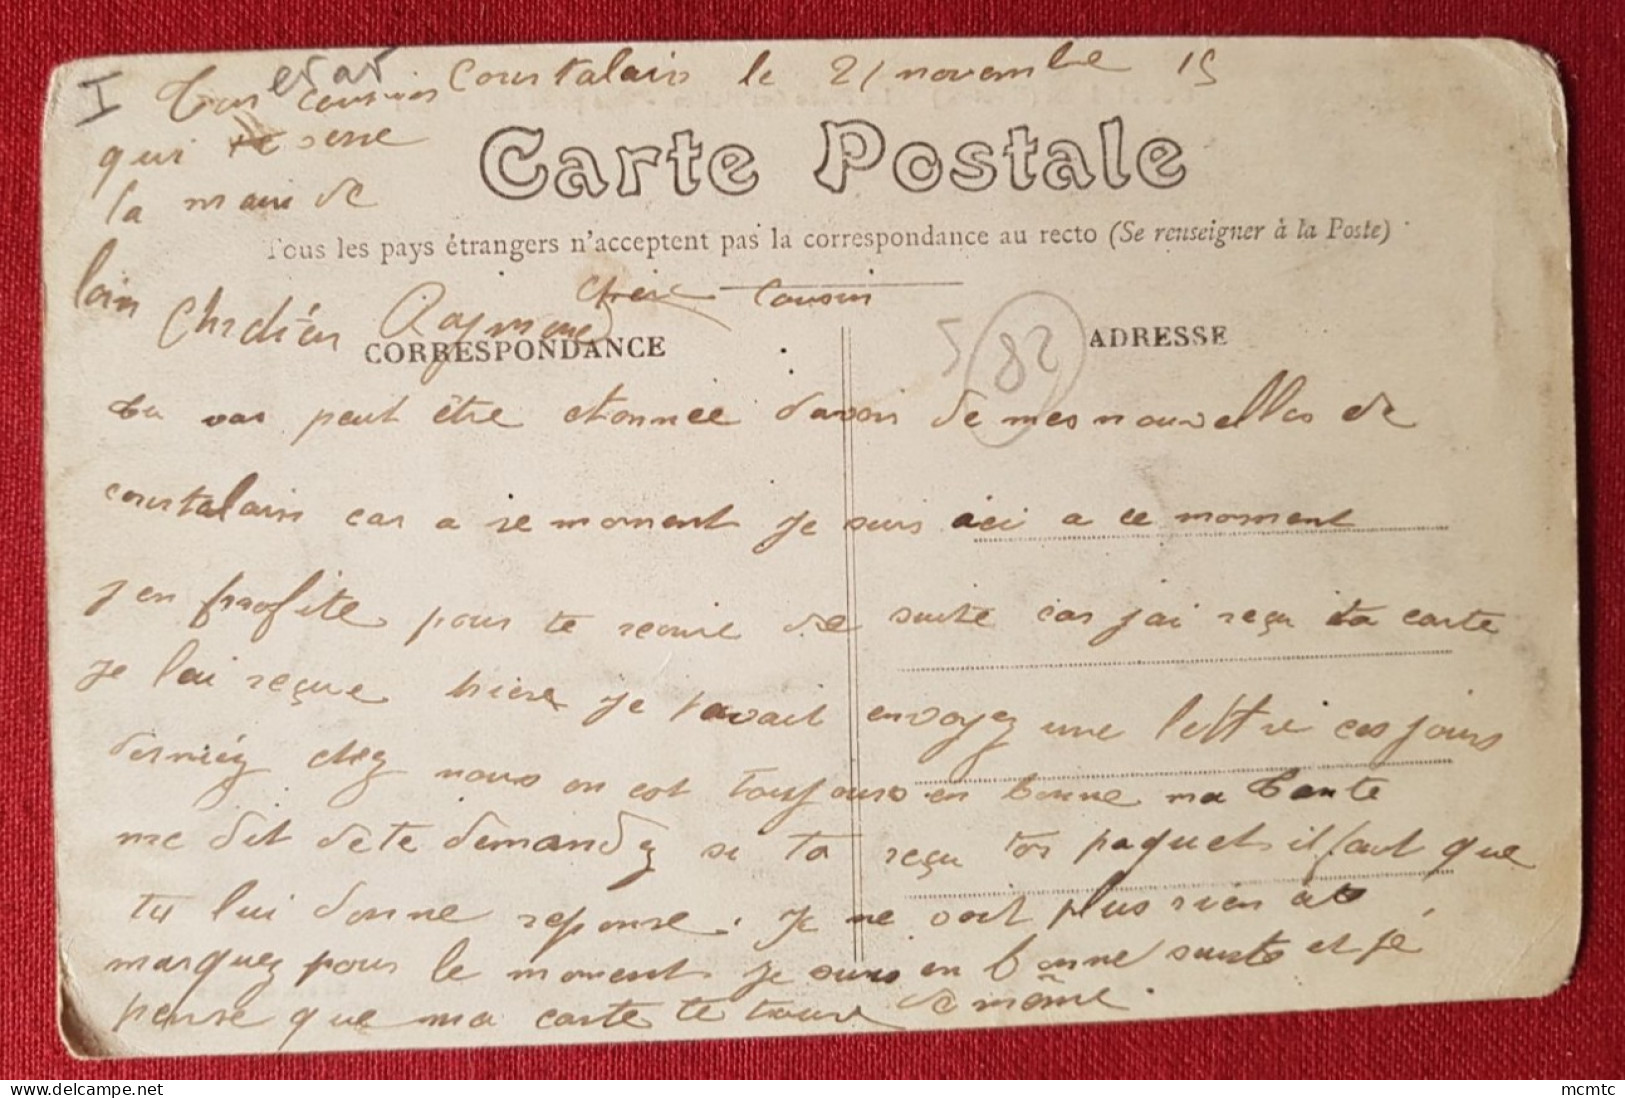 Courtalain le 21 novembre 15
Ton cousin
qui te serre
la main de
loin
Chrétien Raymond
Carte Postale
Tous les pays étrangers n'acceptent pas la correspondance au recto (Se renseigner à la Poste)
Chere Cousin
CORRESPONDANCE
ADRESSE
5
82
tu vas peut être etonnée d'avoir de mes nouvelles de
courtalain car a se moment je suis ici a ce moment
j en profite pour te recrire de suite car j'ai reçu ta carte
je lai reçue hiere je tavait envoyez une lettre ces jours
derniéz chez nous on est toujours en bonne ma tante
me dit dete demandez si ta reçu ton paquet il faut que
tu lui donne reponse. Je ne voit plus rien a te
marquez pour le moment je suis en bonne sante et je
pense que ma carte te trouve de même.
mcmtc